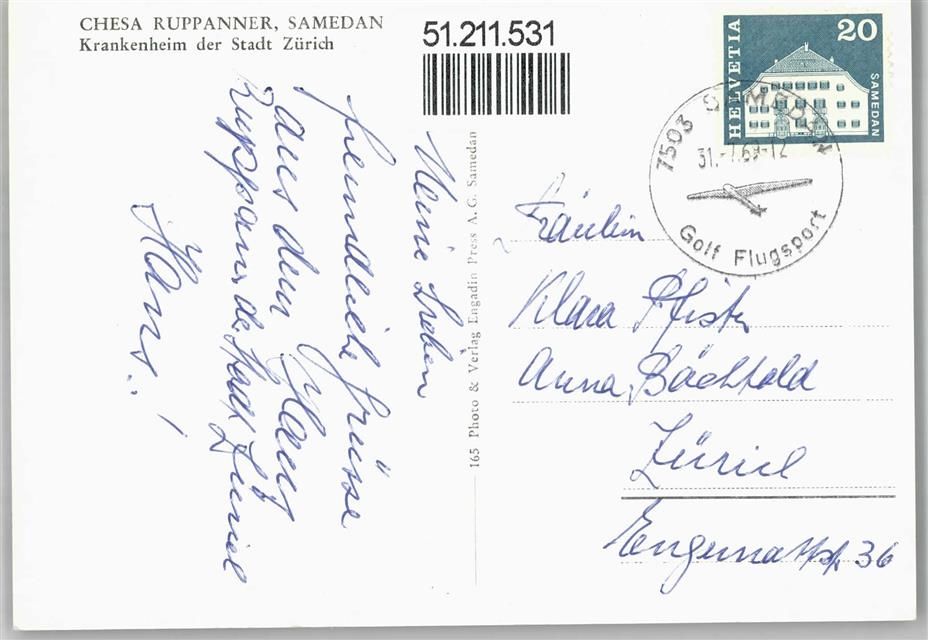 CHESA RUPPANNER, SAMEDAN
Krankenheim der Stadt Zürich
51.211.531
HELVETIA
20
SAMEDAN
7503 SAMEDAN
31.-7.69-12
Golf Flugsport
Meine Lieben
freundliche Grüsse
aus dem
Ruppaner, de Stadt Züriel
Hans.!
165 Photo & Verlag Engadin Press A.G. Samedan
Fräulein
Klara Pfister
Anna Bächtold
Züriel
36